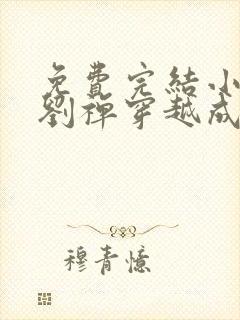 免費完結小
劉禪穿越成
穆青憶